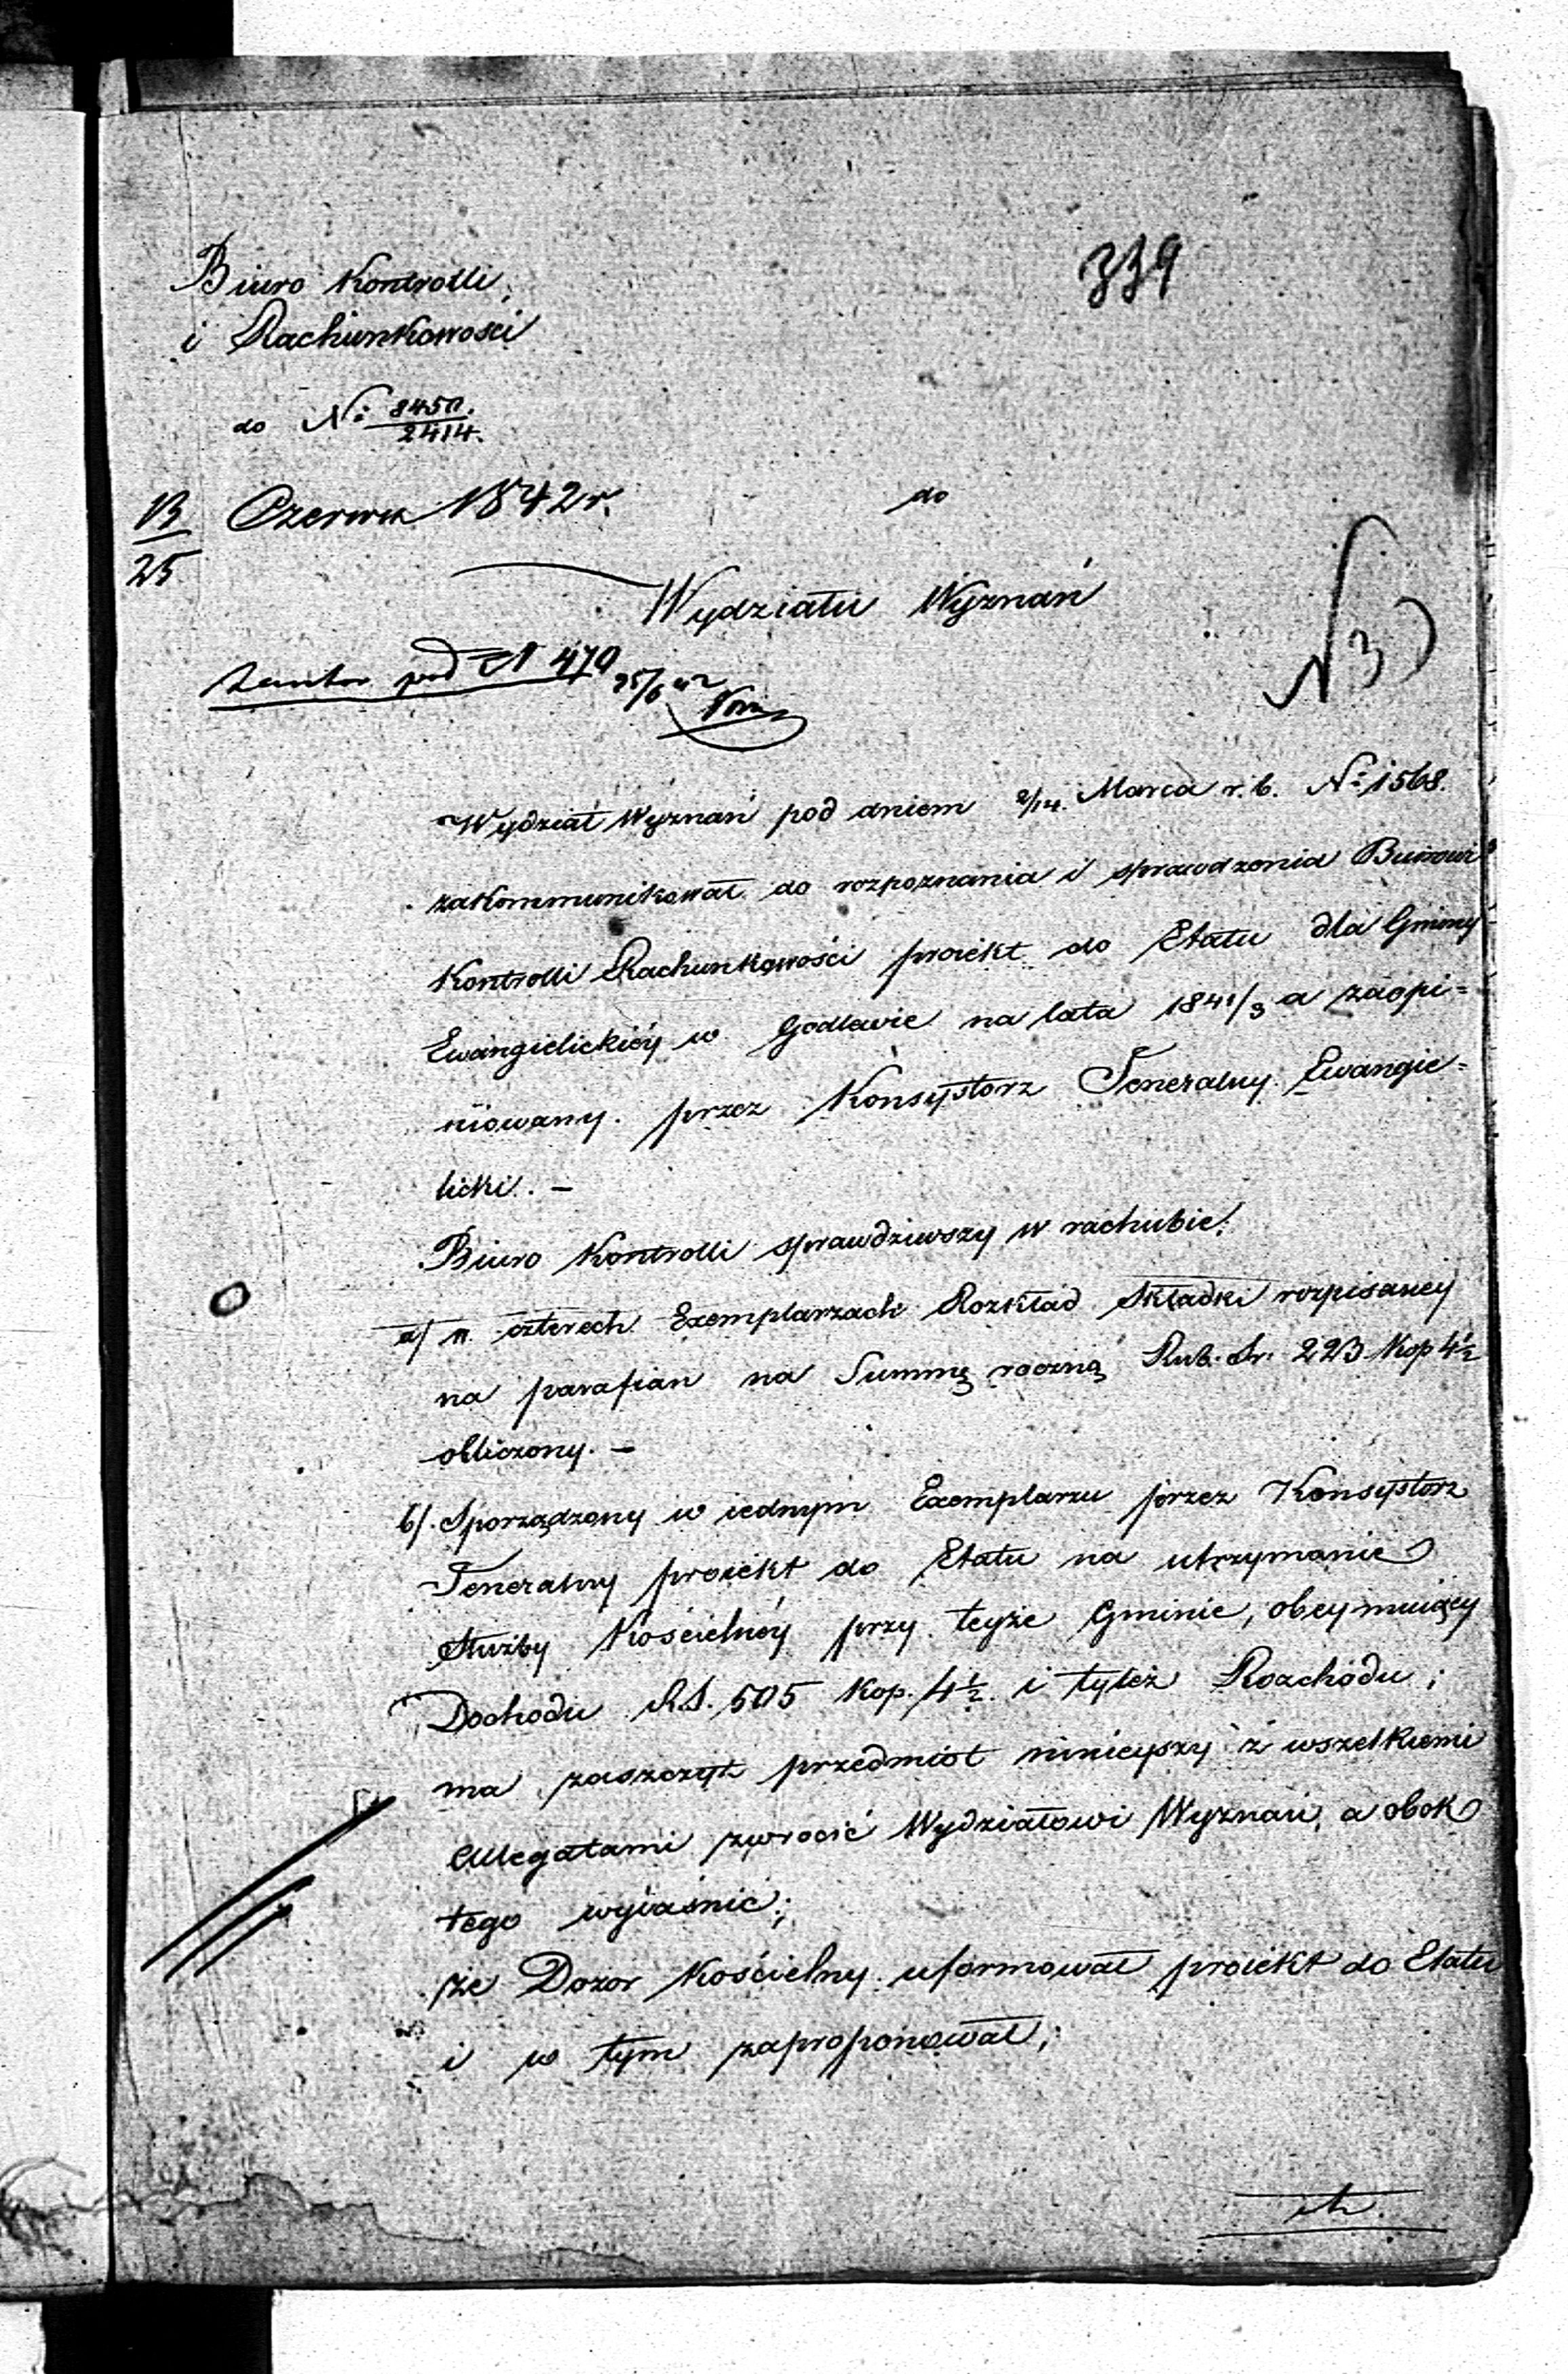 339
Biuro Kontrolli,
i Rachunkowości
do No: 8450./2414.
13/25 Czerwca 1842 r.
do
Wydziału Wyznań
pod N 479 25/6 42
N 3
Wydział Wyznań pod dniem 2/14. Marca r. b. No: 1568.
zakommunikował do rozpoznania i sprawdzenia Biurowi
Kontrolli Rachunkowości proiekt do Etatu dla Gminy
Ewangielickiéy w Godlewie na lata 1841/3 a zaopi=
niowany przez Konsystorz Jeneralny Ewangie=
licki. —
Biuro Kontrolli sprawdziwszy w rachubie:
a/ w czterech Exemplarzach Rozkład Składki rozpisanéy
na parafian na Summę roczną Rub. Sr. 223 Kop 4½
obliczony. —
b/. Sporządzony w iednym Exemplarzu przez Konsystorz
Jeneralny proiekt do Etatu na utrzymanie
służby Kościelnéy przy teyże Gminie, obeymuiący
Dochodu R.S. 505 Kop. 4½ i tyleż Rozchodu;
ma zaszczyt przedmiot ninieyszy z wszelkiemi
Allegatami zwrócić Wydziałowi Wyznań, a obok
tego wyiaśnić;
że Dozor Kościelny uformował proiekt do Etatu
i w tym zaproponował;